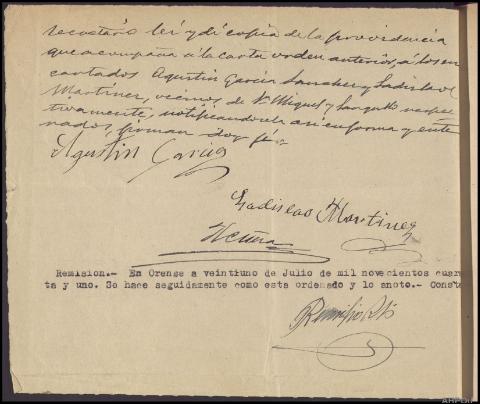 secretario leí y dí copia de la providencia
que acompaña á la carta orden anterior, á los en
cartados Agustin Garcia Sanchez y Ladislao
Martinez, vecinos de Sn Miguel y respec
tivamente, notificandoles asi en forma y ente
rados, firman doy fé.-
Agustin Garcia
Ladislao Martinez
Remision.- En Orense a veintiuno de Julio de mil novecientos cuaren
ta y uno. Se hace seguidamente como esta ordenado y lo anoto.- Consta